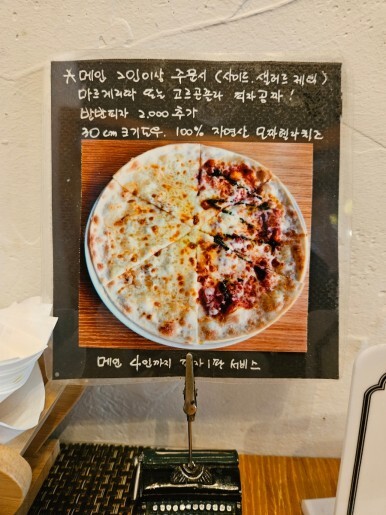 ※ 메인 2인이상 주문시 (사이드, 샐러드 제외)
마르게리따 또는 고르곤졸라 피자공짜!
반반피자 2,000 추가
30cm 크기도우, 100% 자연산 모짜렐라치즈
메인 4인까지 피자 1판 서비스